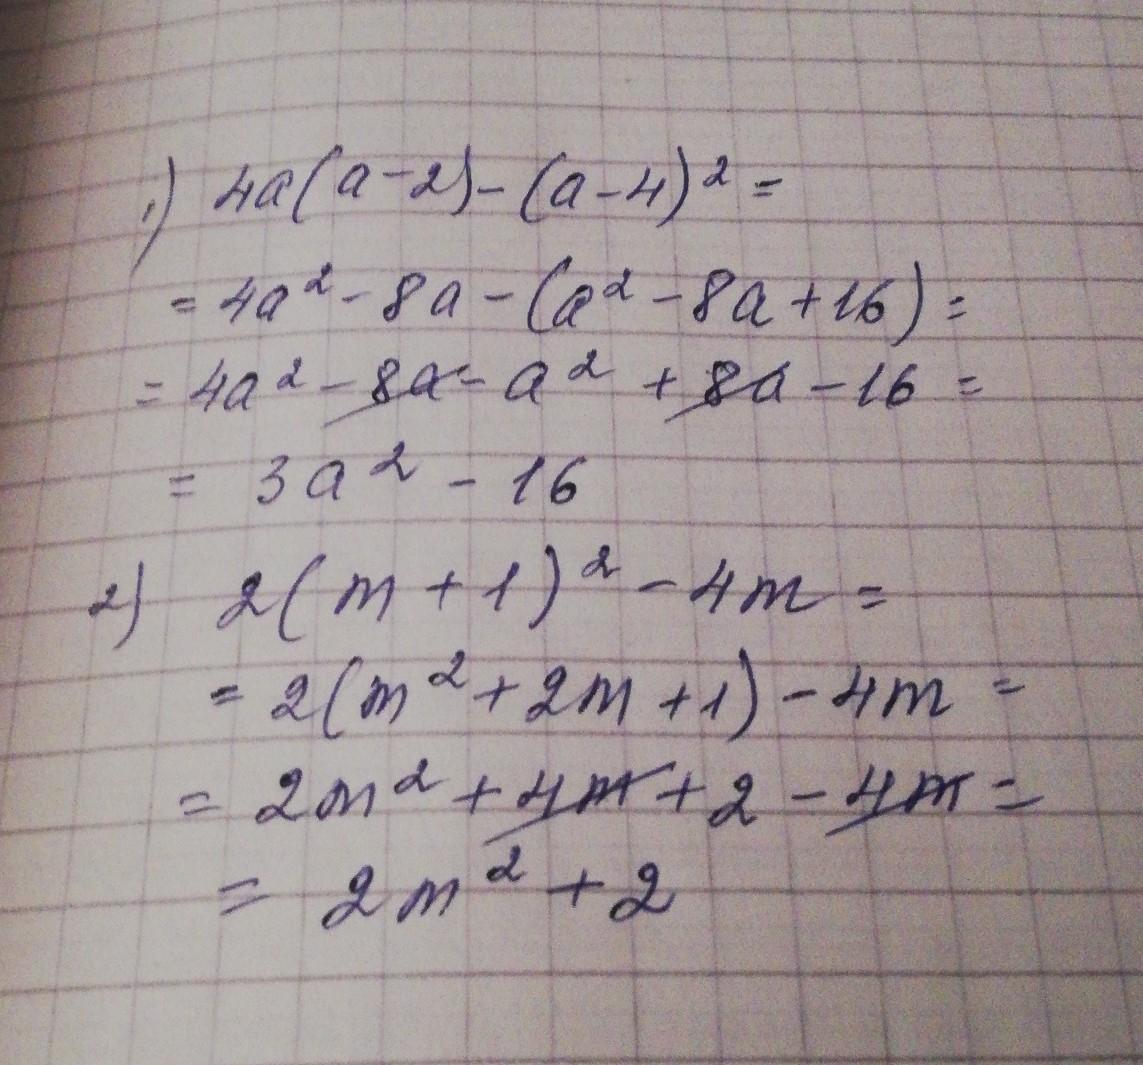 1) 4a(a-2)-(a-4)² =
= 4a² - 8a - (a² - 8a + 16) =
= 4a² - 8a - a² + 8a - 16 =
= 3a² - 16
2) 2(m + 1)² - 4m =
= 2(m² + 2m + 1) - 4m =
= 2m² + 4m + 2 - 4m =
= 2m² + 2